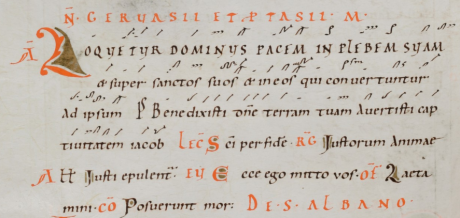 N̄. GERVASII ET P̄TASII. M̄.
A LOQVETVR DOMINVS PACEM IN PLEBEM SVAM
& super sanctos suos & in eos qui convertuntur
ad ipsum Ps Benedixisti dn̄e terram tuam avertisti cap
tivitatem iacob Lec̄ S c̄i per fide. RG Iustorum animae
All Iusti epulent̄ EV Ecce ego mitto vos. OF Laeta
mini. CO Posuerunt mor: DE S. ALBANO.